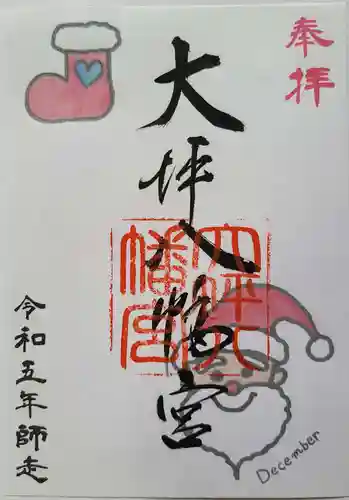 奉拝
大坪八幡宮
大坪八幡宮
令和五年師走
December